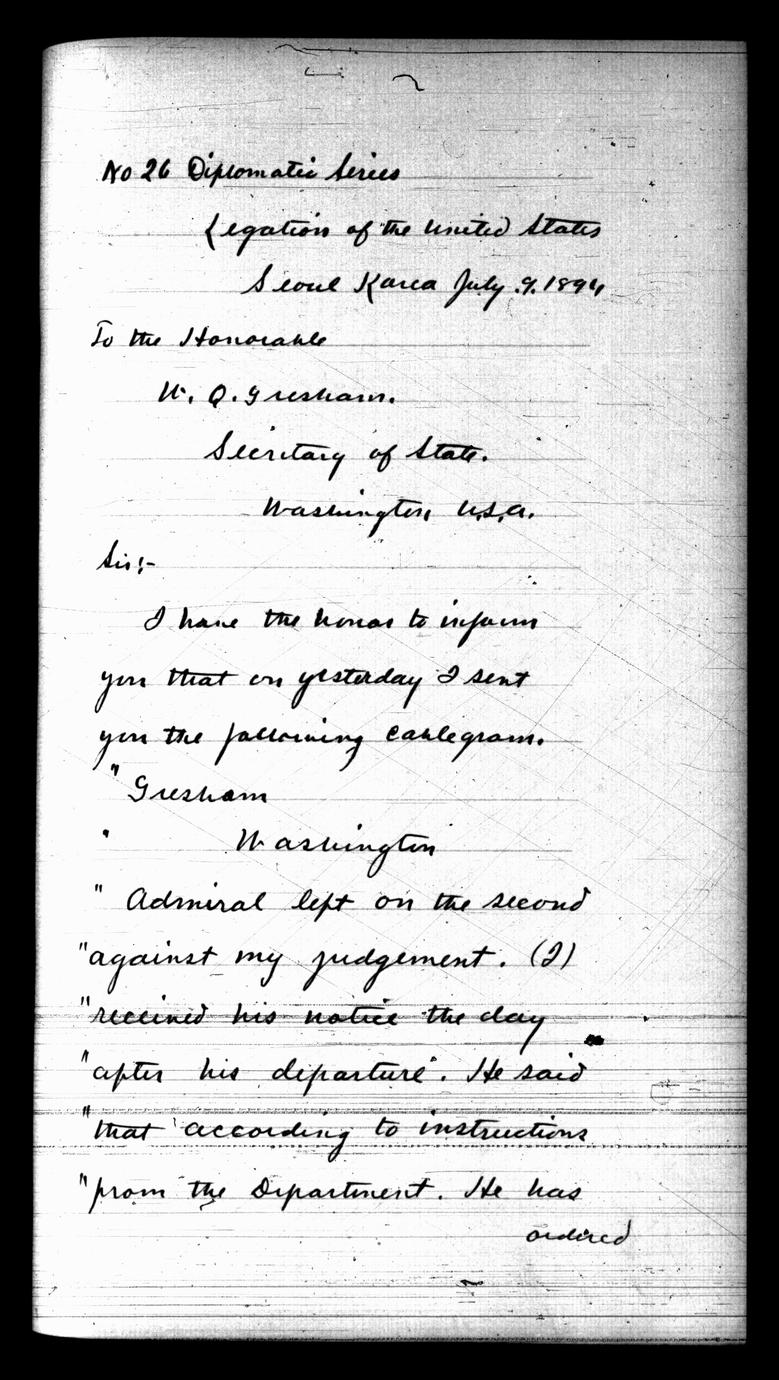 No 26 Diplomatic Series
Legation of the United States
Seoul Korea July .9. 1894
To the Honorable
W. Q. Gresham.
Secretary of State.
Washington, U.S.A.
Sir:-
I have the honor to inform
you that on yesterday I sent
you the following cablegram.
"Gresham
" Washington
" Admiral left on the second
"against my judgement. (I)
"received his notice the day
"after his departure". He said
"that according to instructions
"from the Department. He has
ordered